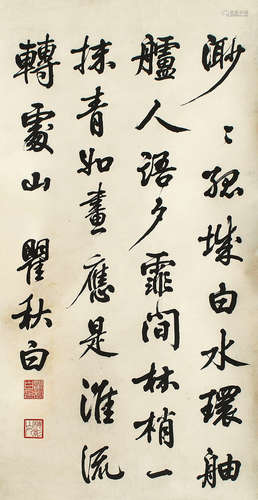 渺〻孤城白水環舳
艫人語夕霏間林梢一
抹青如畫應是淮流
轉處山 瞿秋白